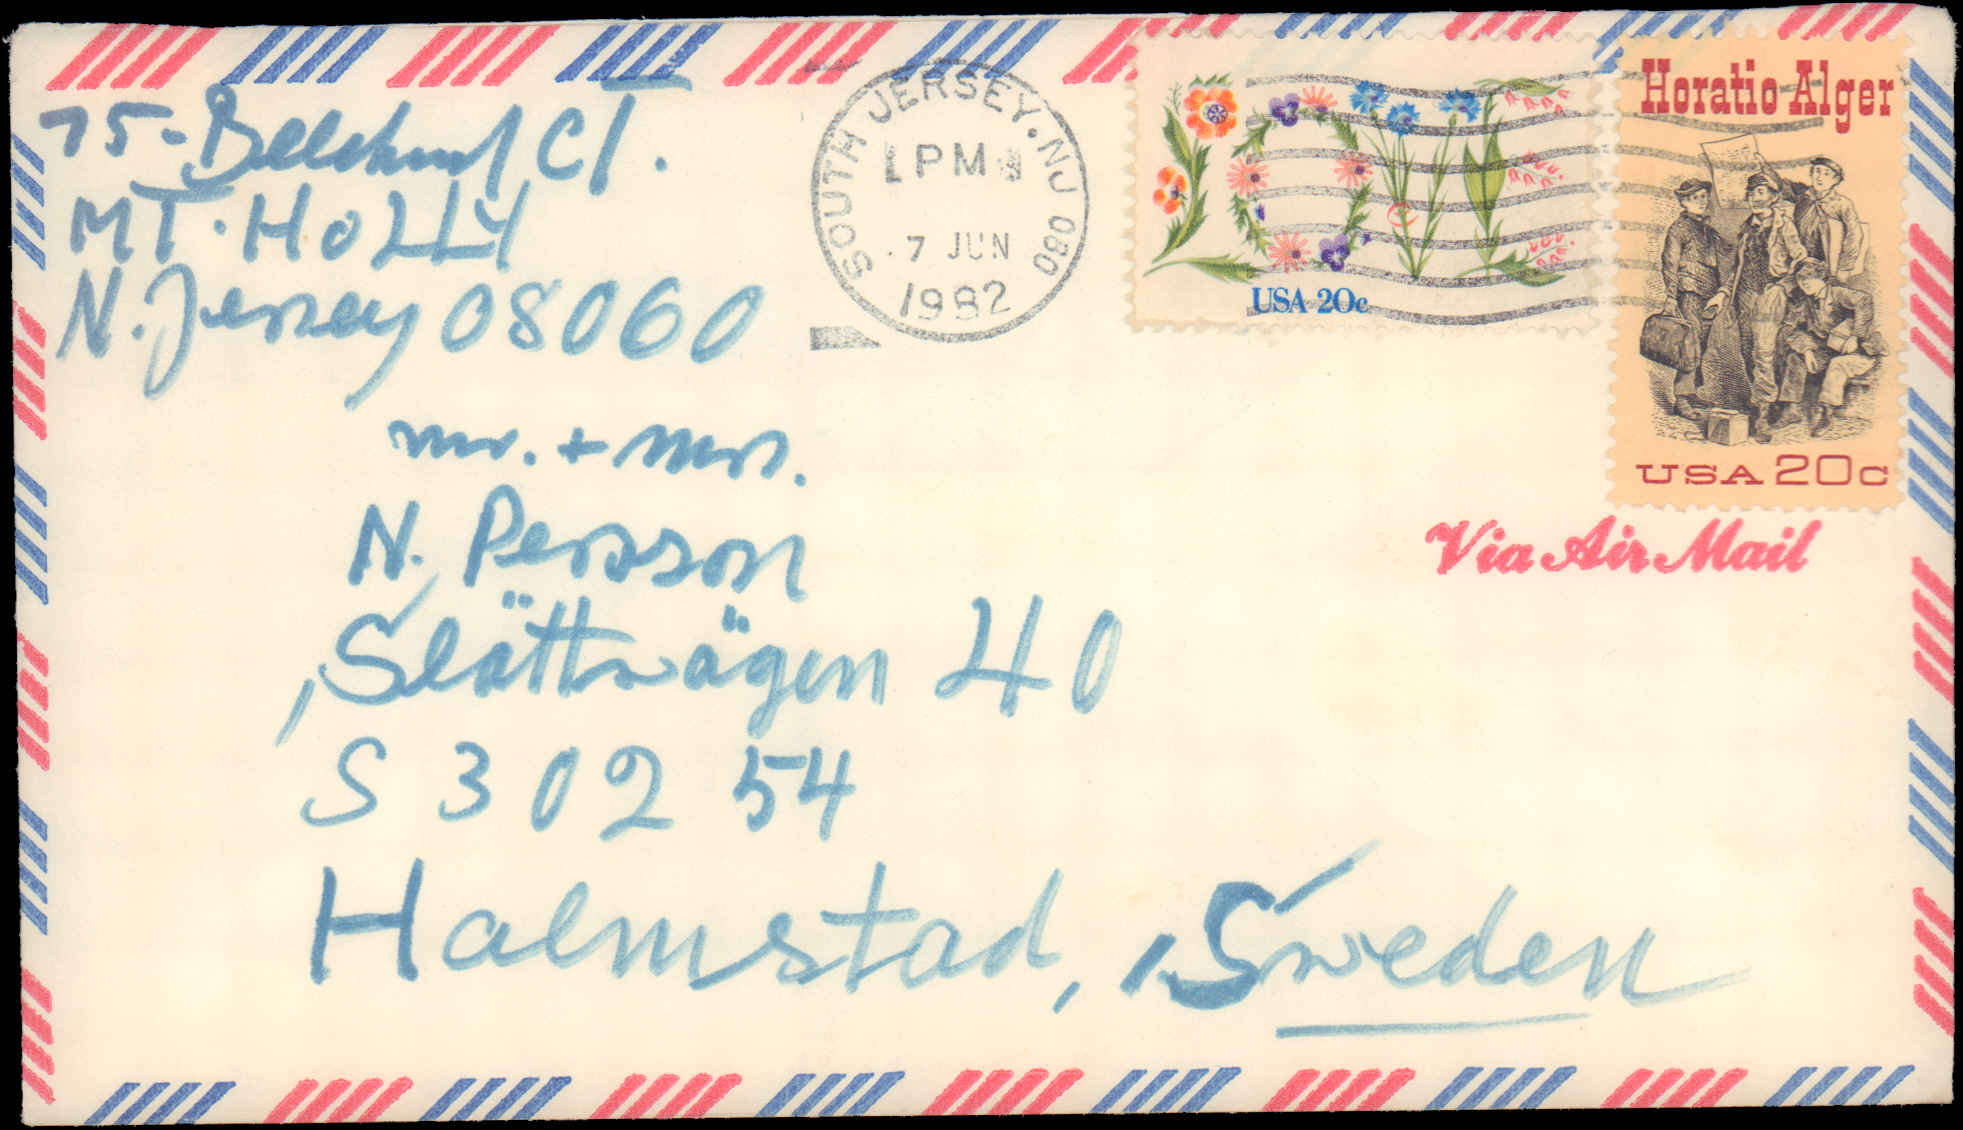 75- CT.
MT. HOLLY
N. Jersey 08060
SOUTH JERSEY. NJ 080
PM
7 JUN
1982
LOVE
USA 20c
Horatio Alger
USA 20c
Via Air Mail
mr. + mrs.
N. Persson
Slättvägen 40
S 302 54
Halmstad, Sweden